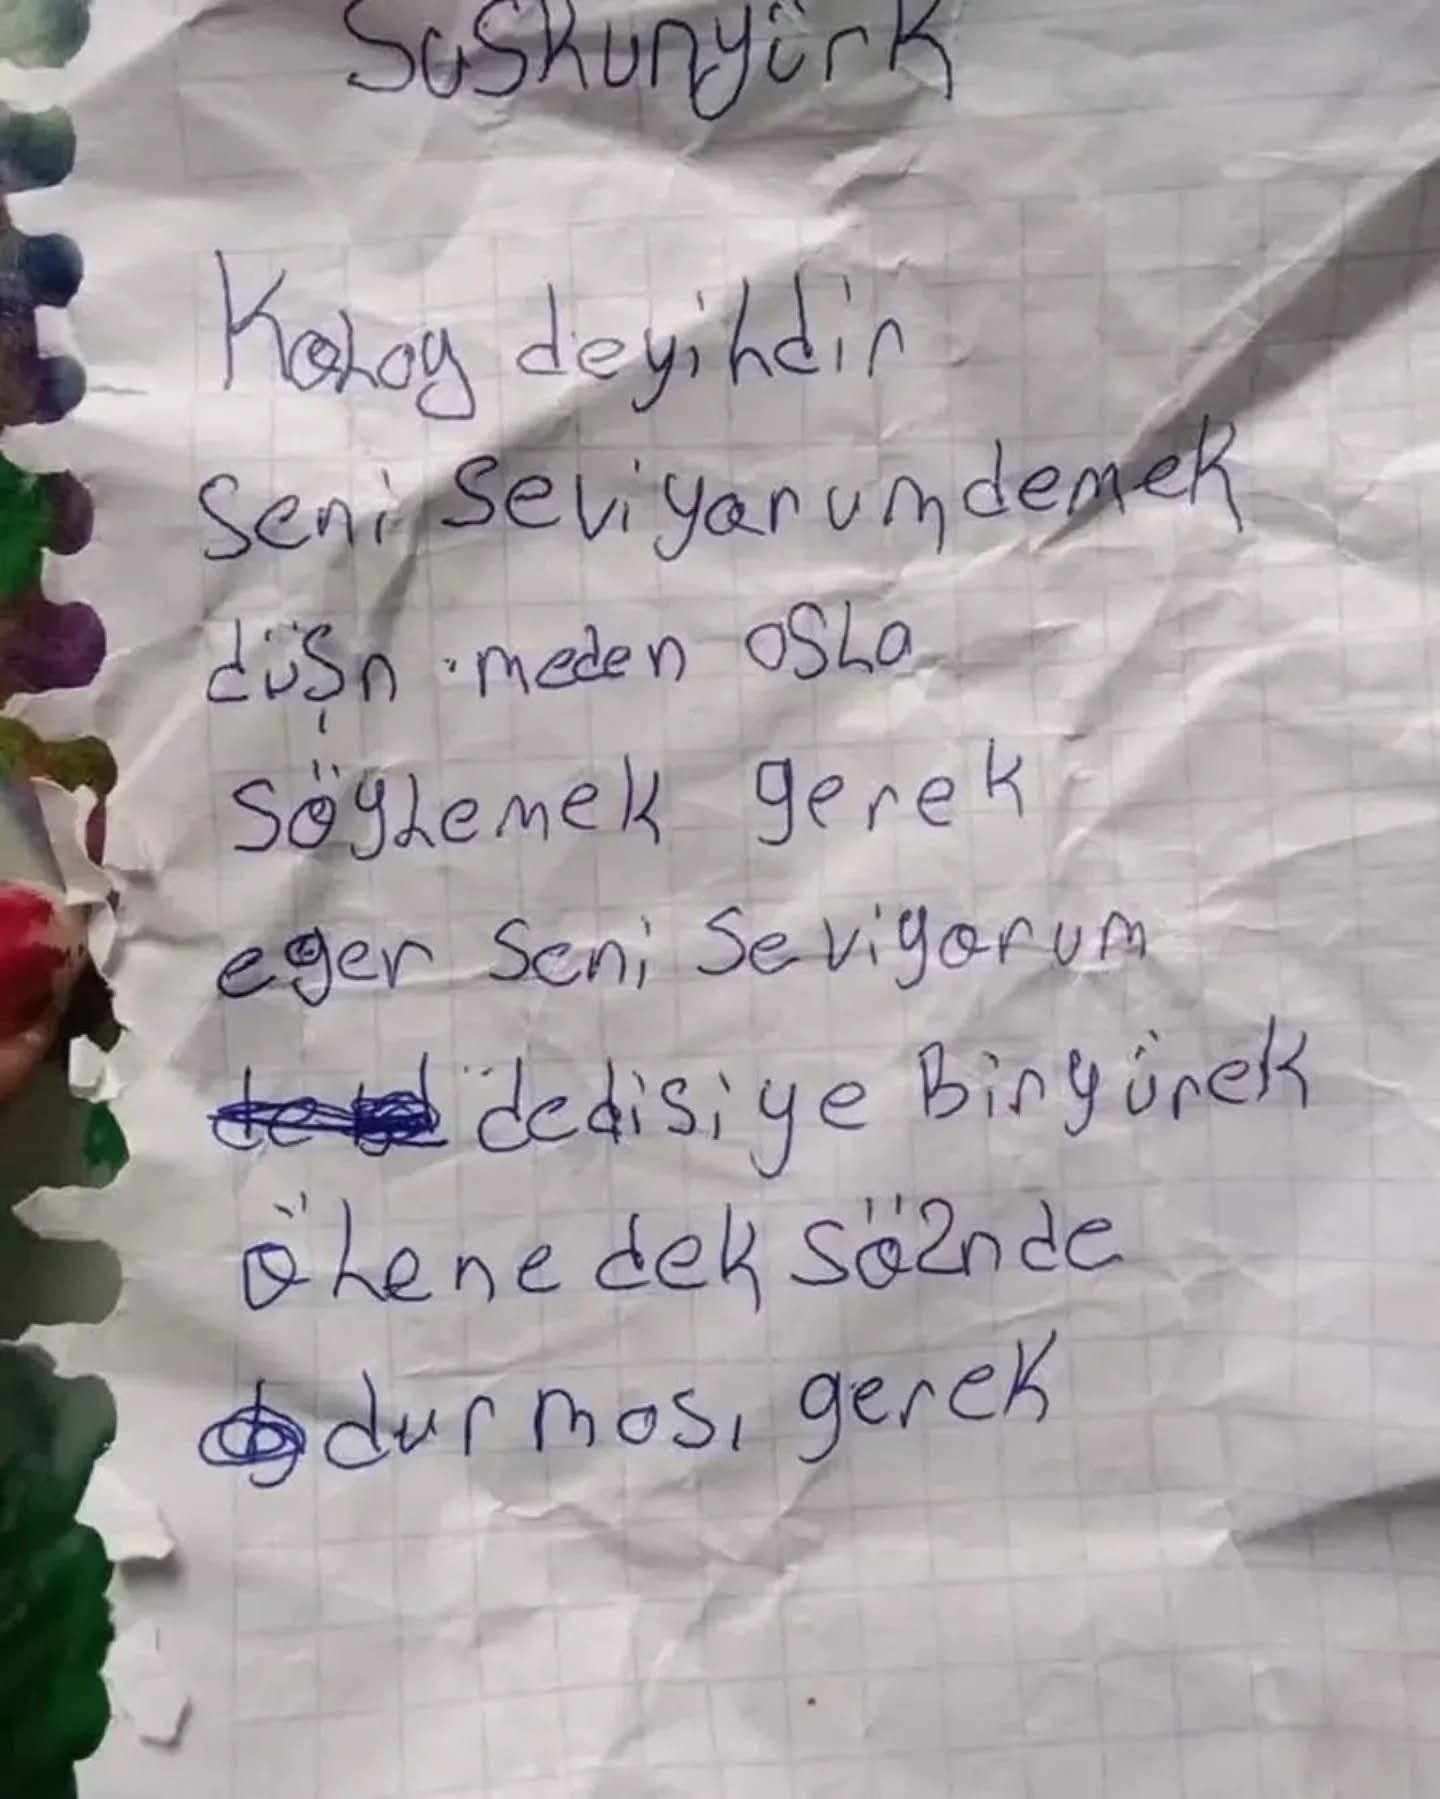 Suskunyürk
Kolay deyildir
Seni Seviyarumdemek
düşn meden asla
söylemek gerek
eger seni seviyorum
dedisiye Biryürek
ölene dek söznde
durması gerek